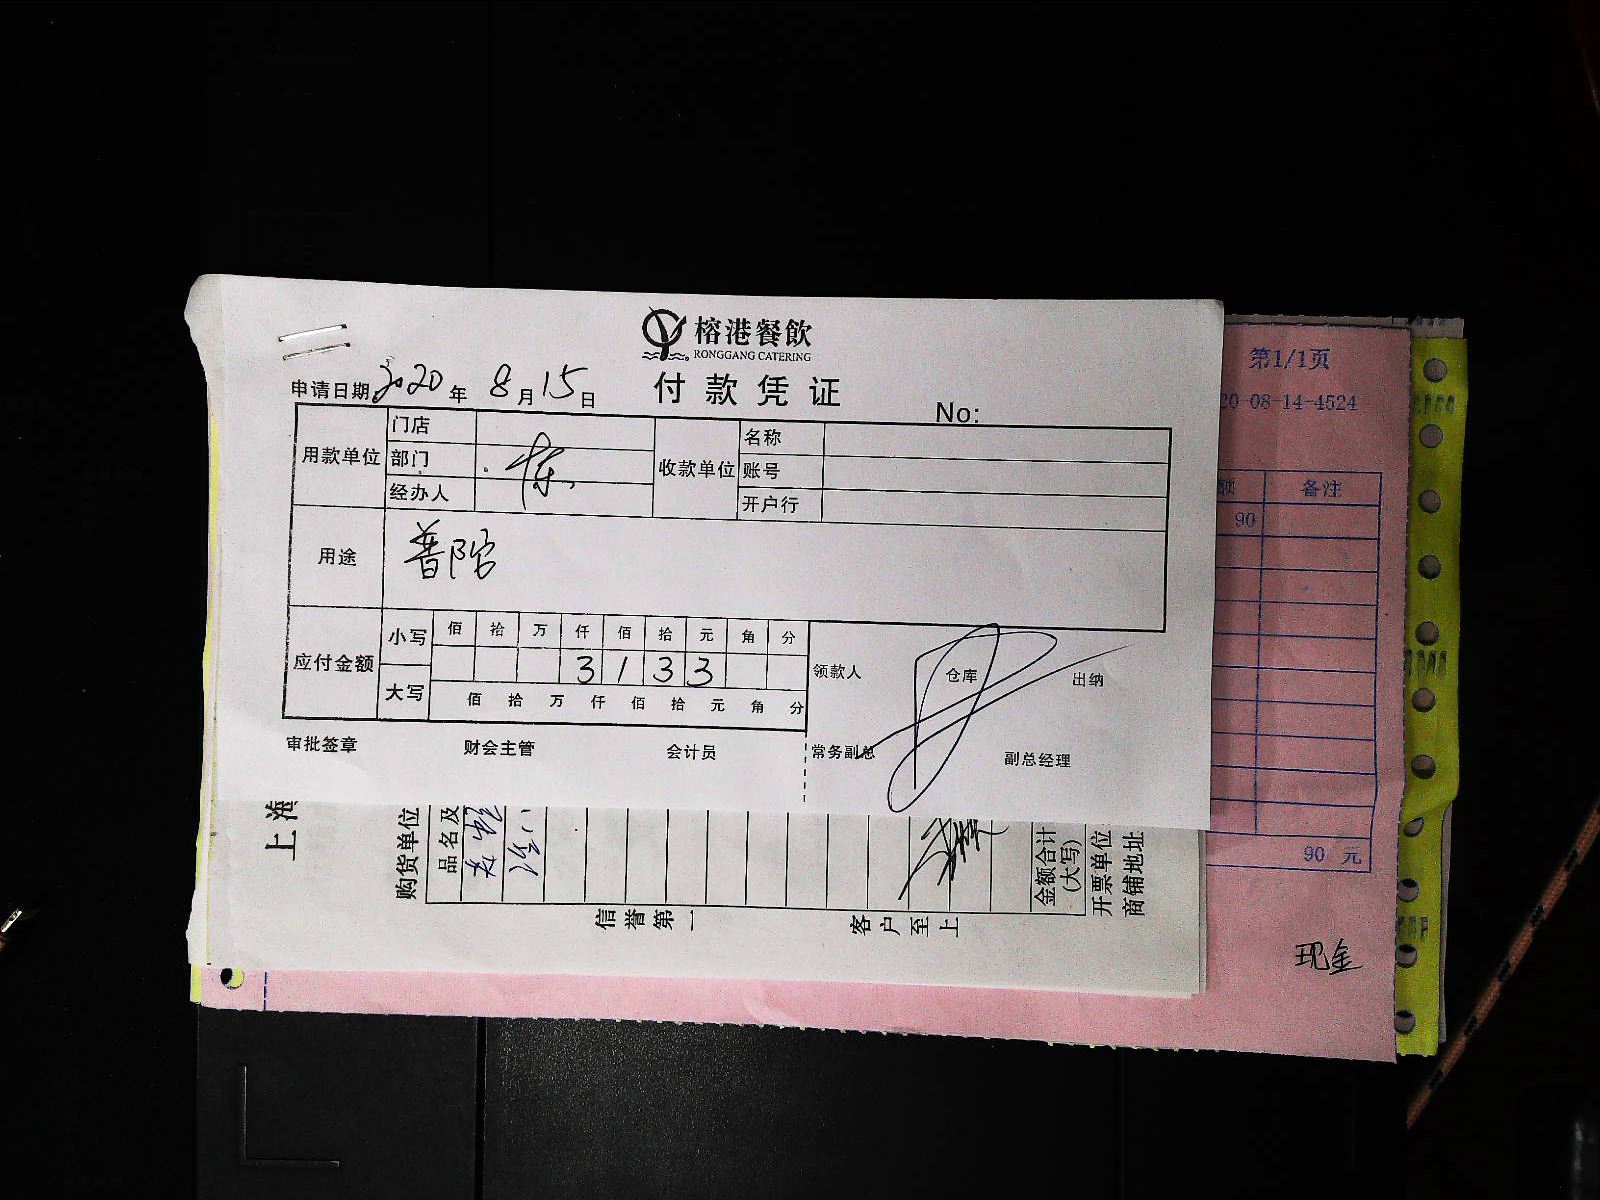 榕港餐飲
RONGGANG CATERING
付款凭证
申请日期 2020 年 8 月 15 日
No:
用款单位 门店 收款单位 名称
部门 账号
经办人 开户行
用途 普陀
应付金额 小写 佰 拾 万 仟 佰 拾 元 角 分
3 1 3 3
大写 佰 拾 万 仟 佰 拾 元 角 分
领款人 仓库 出纳
审批签章 财会主管 会计员 常务副总 副总经理
第1/1页
20-08-14-4524
额 备注
90
90 元
现金
上海
购货单位
品名及
信誉第一 客户至上
金额合计
(大写)
开票单位
商铺地址